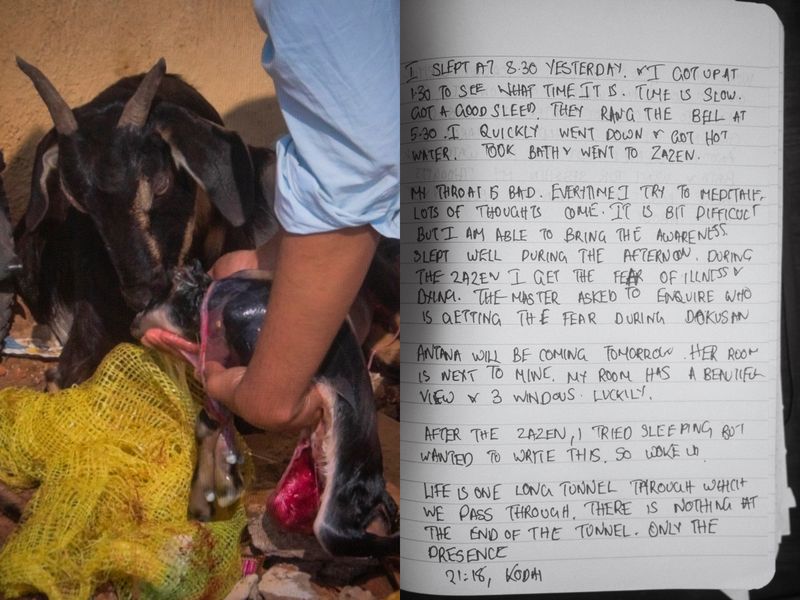 I SLEPT AT 8.30 YESTERDAY. & I GOT UP AT
1:30 TO SEE WHAT TIME IT IS. TIME IS SLOW.
GOT A GOOD SLEEP. THEY RANG THE BELL AT
5:30. I QUICKLY WENT DOWN & GOT HOT
WATER. TOOK BATH & WENT TO ZAZEN.
MY THROAT IS BAD. EVERYTIME I TRY TO MEDITATE,
LOTS OF THOUGHTS COME. IT IS BIT DIFFICULT
BUT I AM ABLE TO BRING THE AWARENESS
SLEPT WELL DURING THE AFTERNOON. DURING
THE ZAZEN I GET THE FEAR OF ILLNESS &
DYING. THE MASTER ASKED TO ENQUIRE WHO
IS GETTING THE FEAR DURING DOKUSAN
WILL BE COMING TOMORROW. HER ROOM
IS NEXT TO MINE. MY ROOM HAS A BEAUTIFUL
VIEW & 3 WINDOWS. LUCKILY.
AFTER THE ZAZEN, I TRIED SLEEPING BUT
WANTED TO WRITE THIS. SO WOKE UP.
LIFE IS ONE LONG TUNNEL THROUGH WHICH
WE PASS THROUGH. THERE IS NOTHING AT
THE END OF THE TUNNEL. ONLY THE
PRESENCE
21:18, KODAI